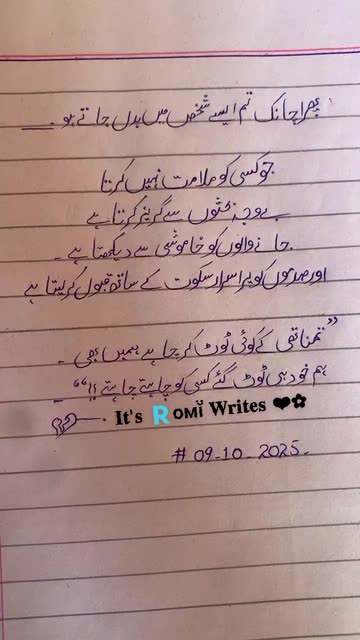 پھر اچانک تم ایسے شخص میں بدل جاتے ہو۔
جو کسی کو ملامت نہیں کرتا
بے وجہ بحثوں سے گریز کرتا ہے
جانے والوں کو خاموشی سے دیکھتا ہے۔
اور صدموں کو پراسرار سکوت کے ساتھ قبول کر لیتا ہے
”تمنا تھی کے کوئی ٹوٹ کر چاہے ہمیں بھی۔
ہم خود ہی ٹوٹ گئے کسی کو چاہتے چاہتے !!“۔
It's ROMĬ Writes ❤✿
# 09-10-2025.